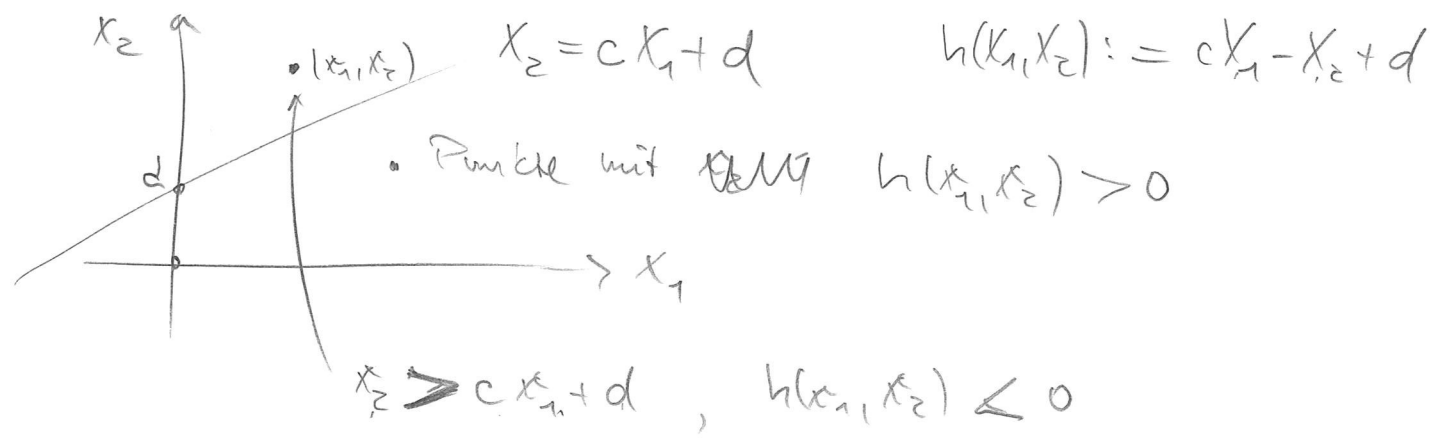 x₂
•(x₁,x₂)
x₂ = cx₁ + d
h(x₁,x₂) := cx₁ - x₂ + d
d
• Punkte mit h(x₁,x₂) > 0
x₁
x₂ > cx₁ + d , h(x₁,x₂) < 0